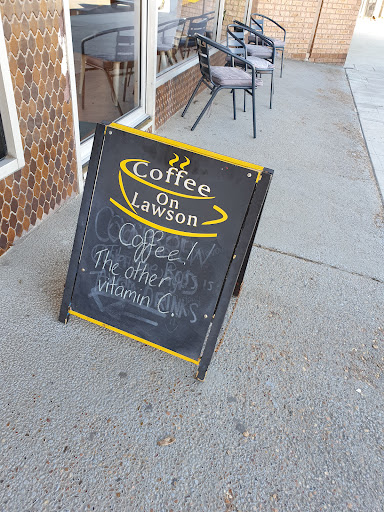 Coffee
On
Lawson
Coffee!
The other
vitamin C.